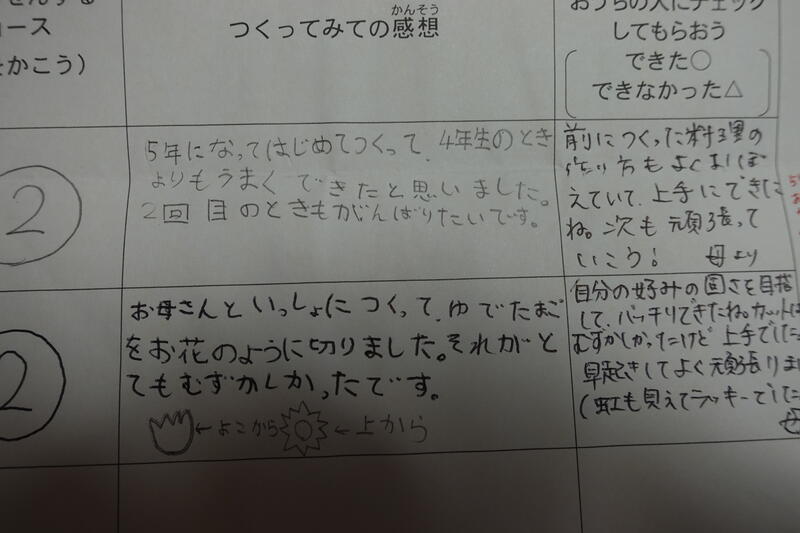 コース
をかこう）
つくってみての感想
かんそう
おうちの人にチェック
してもらおう
できた○
できなかった△
2
5年になってはじめてつくって、4年生のとき
よりもうまくできたと思いました。
2回目のときもがんばりたいです。
前につくった料理の
作り方もよくおぼ
えていて、上手にできた
ね。次も頑張って
いこう！ 母より
2
お母さんといっしょにつくって、ゆでたまご
をお花のように切りました。それがと
てもむずかしかったです。
←よこから ←上から
自分の好みの固さを目指
して、バッチリできたね。カットは
むずかしかったけど上手でした
早起きしてよく頑張りま
（虹も見えてラッキーでした
母